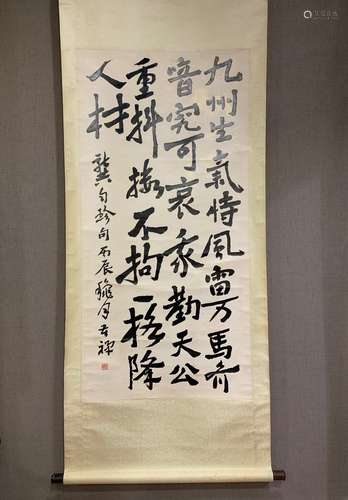 九州生氣恃風雷万馬齐
音究可哀我勸天公
重抖擻不拘一格降
人材
龔自珍句丙辰穐月